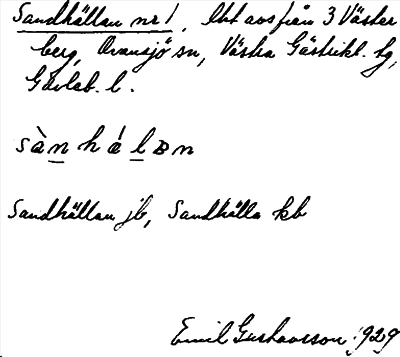 Sandhällan nr 1. Lht avs från 3 Väster
berg, Ovansjö sn, Västra Gästrikl. tg,
Gävleb. l.
sànhálɒn
Sandhällan jb, Sandhälla kb
Emil Gustavsson 1929